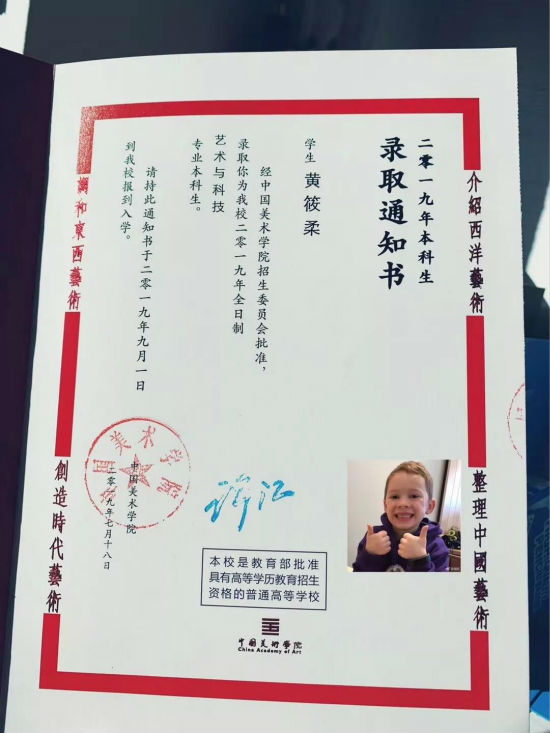 二零一九年本科生
录取通知书
学生 黄筱柔
经中国美术学院招生委员会批准，
录取你为我校二零一九年全日制
艺术与科技
专业本科生。
请持此通知书于二零一九年九月一日
到我校报到入学。
中国美术学院
二零一九年七月十八日
国美术学院
许江
本校是教育部批准
具有高等学历教育招生
资格的普通高等学校
中国美术学院
China Academy of Art
介紹西洋藝術
整理中國藝術
調和東西藝術
創造時代藝術